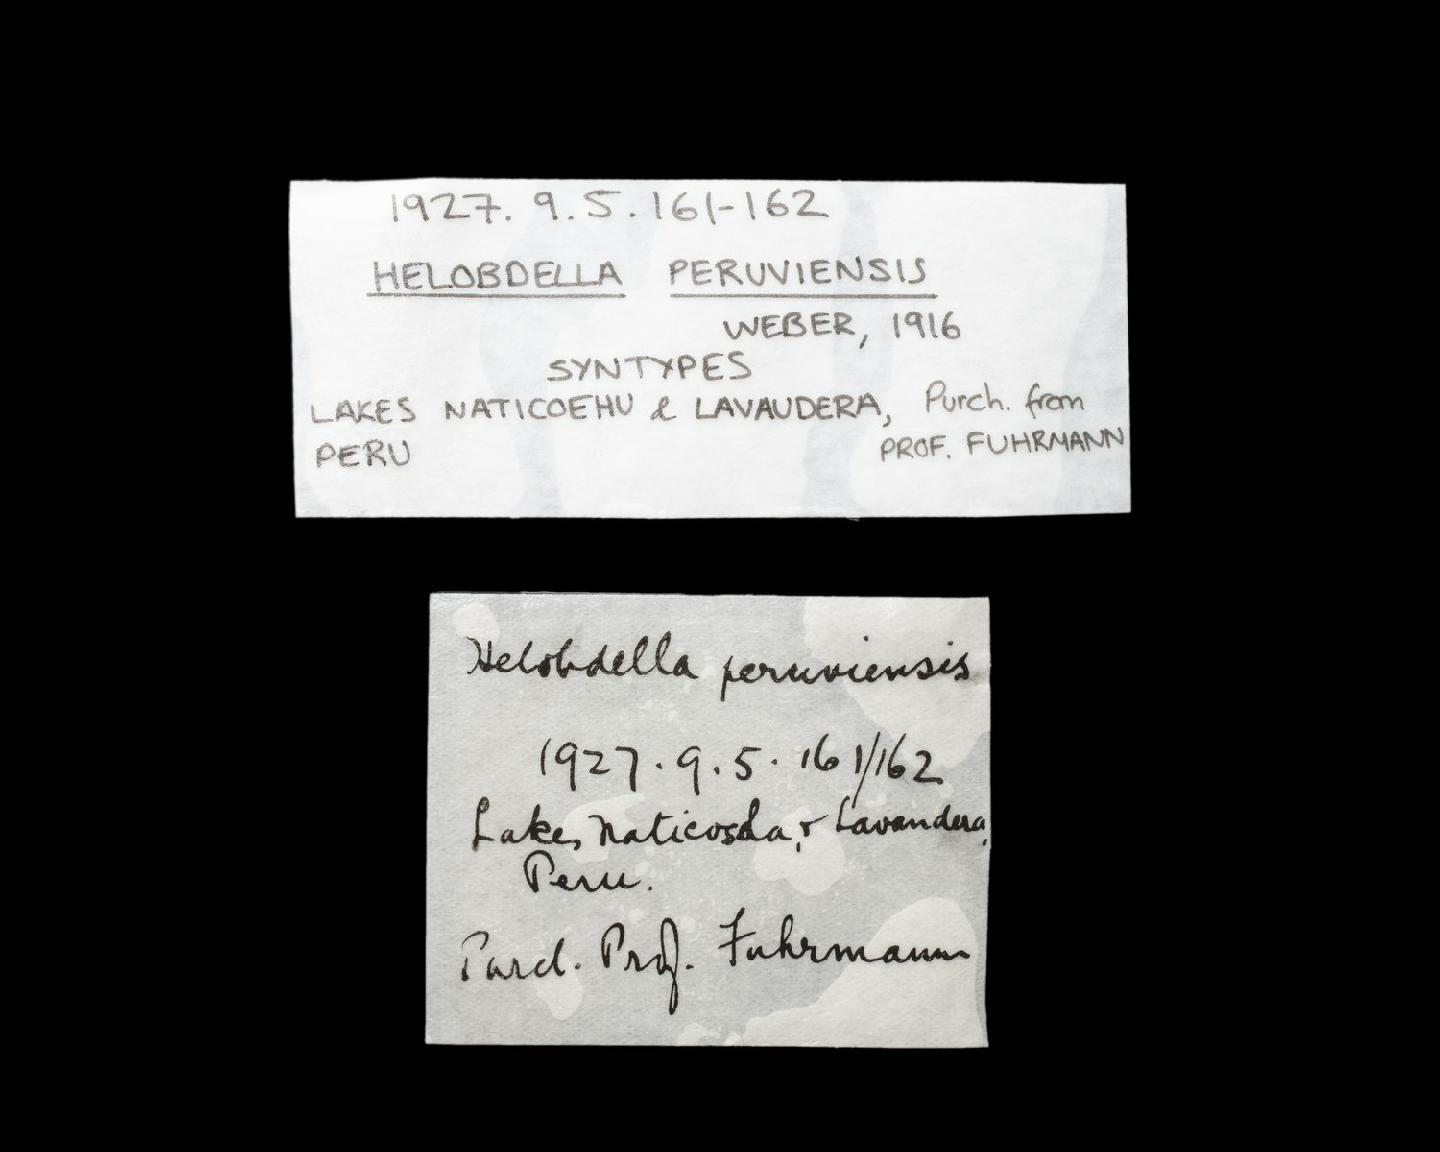 1927. 9.5.161-162
HELOBDELLA PERUVIENSIS
WEBER, 1916
SYNTYPES
LAKES NATICOEHU & LAVAUDERA, Purch. from
PERU PROF. FUHRMANN
Helobdella peruviensis
1927.9.5.161/162
Lakes & Lavandera,
Peru.
Purch. Prof. Fuhrmann